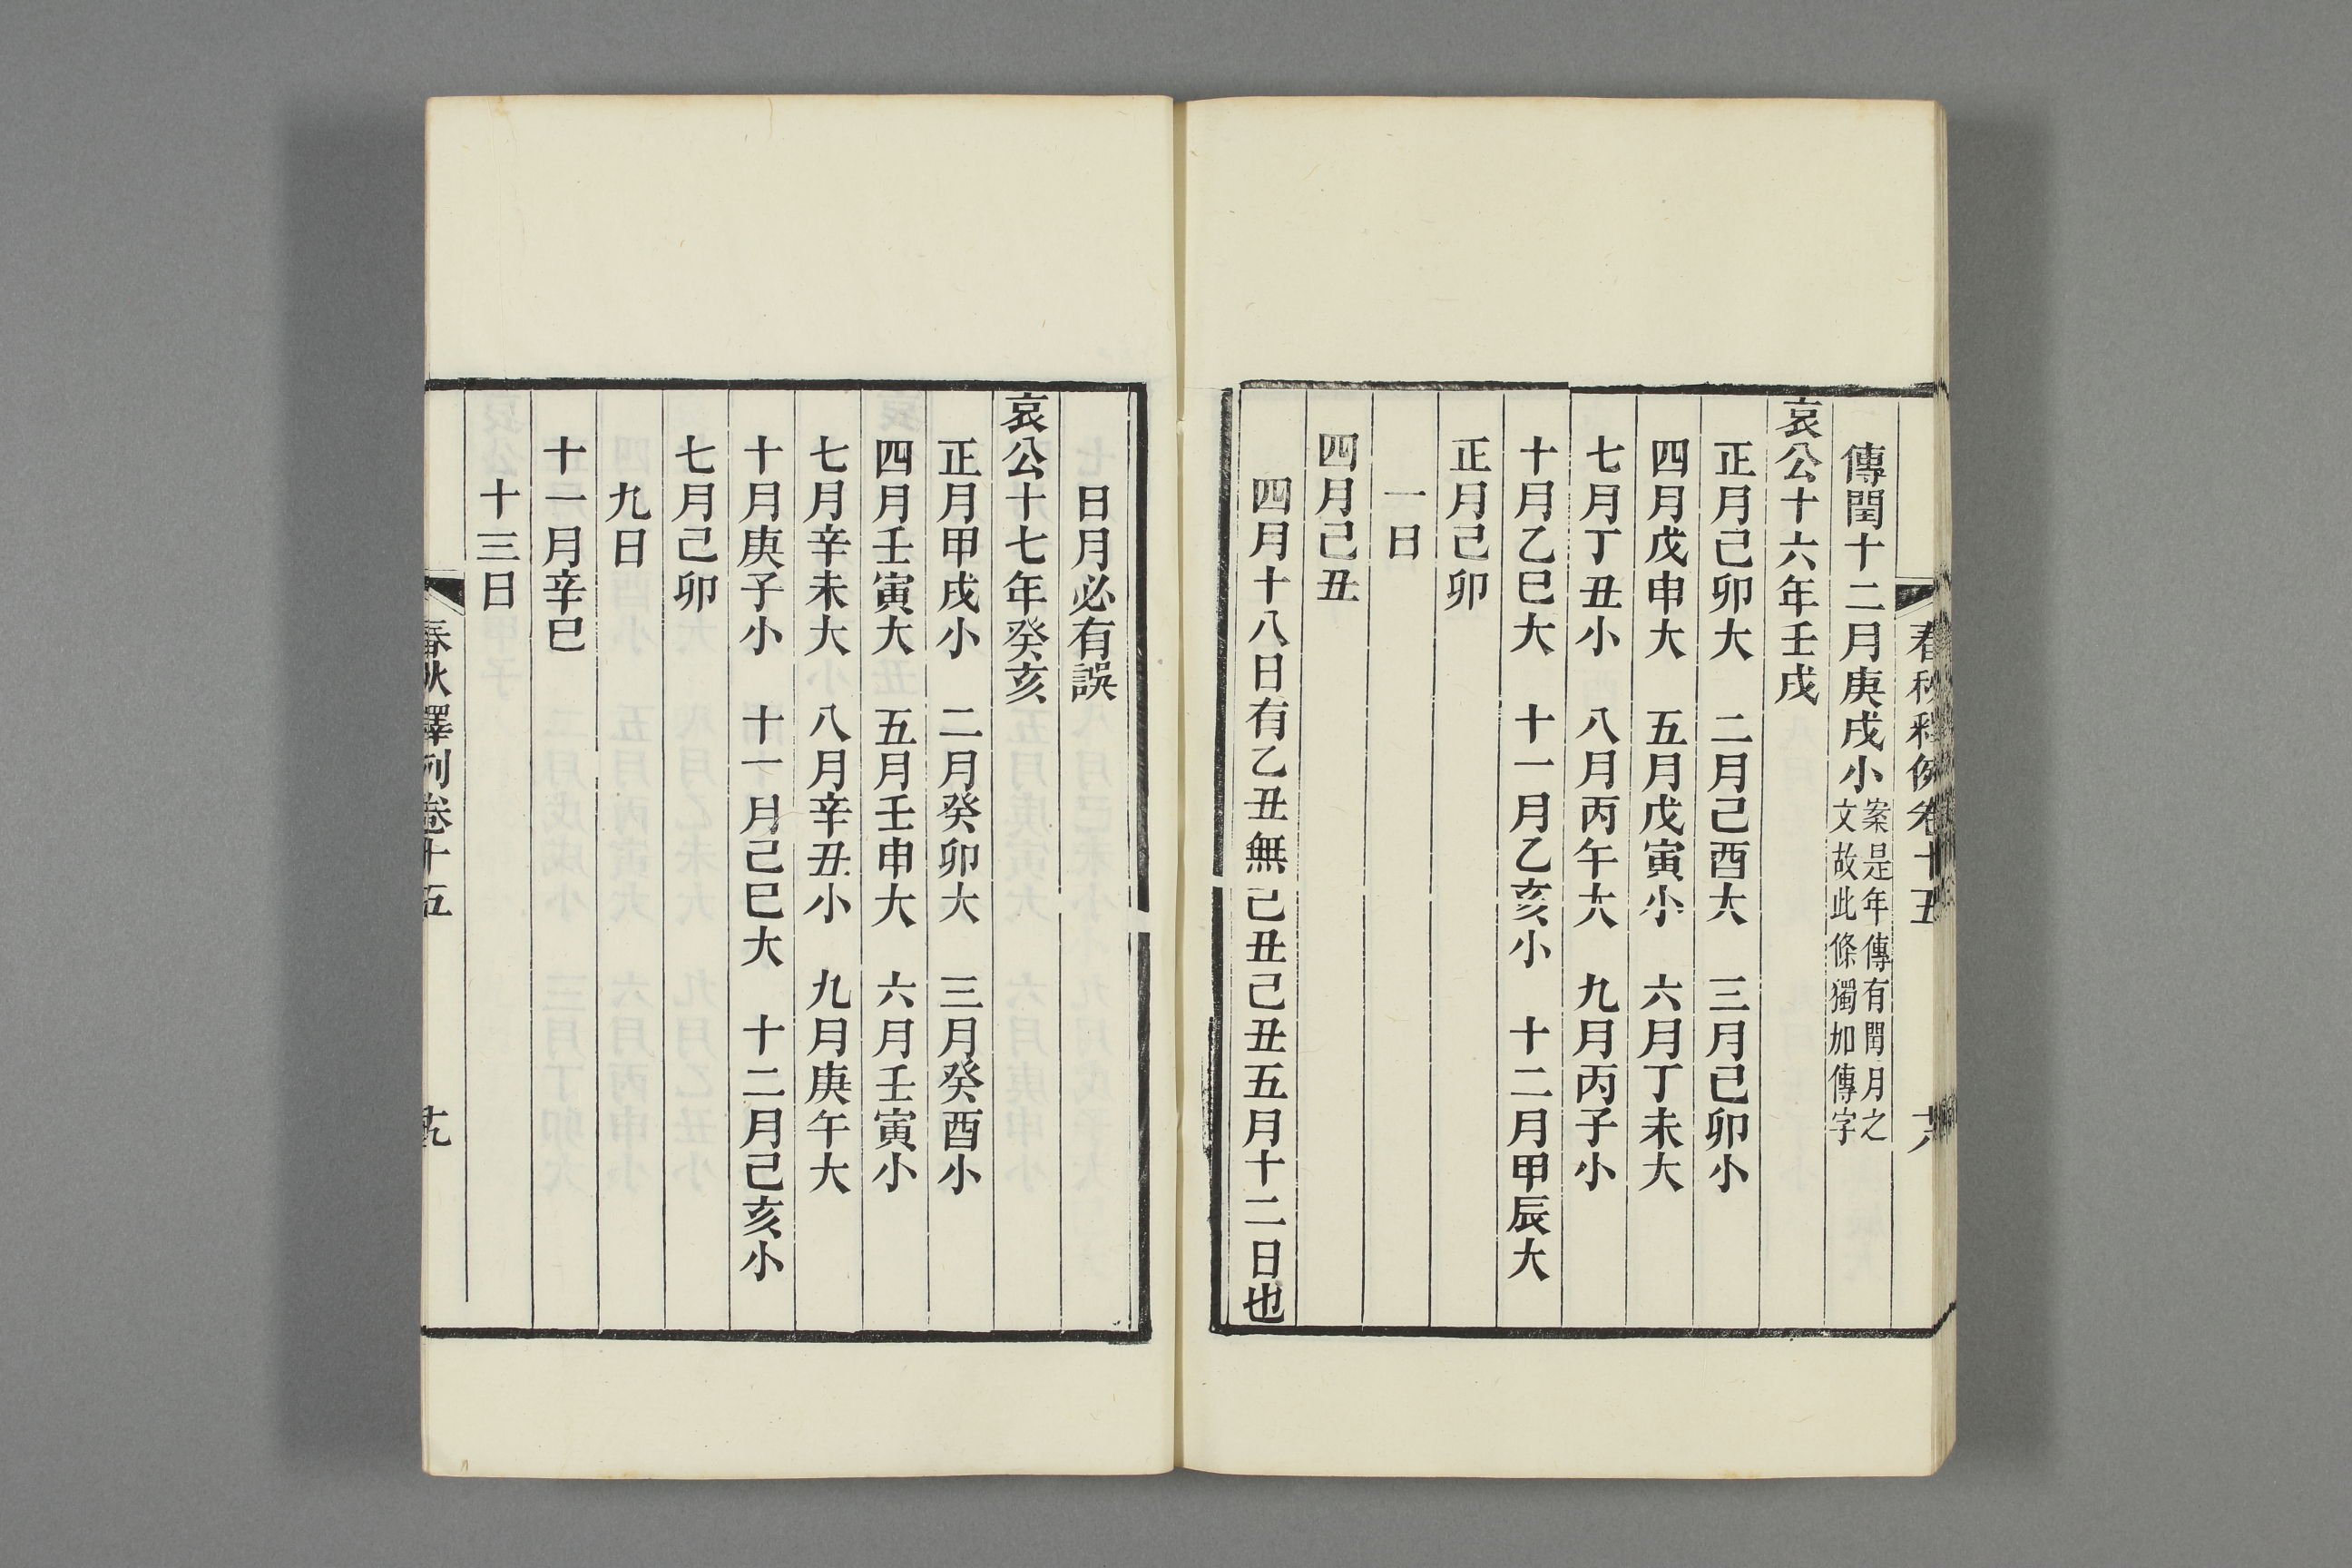 春秋釋例卷十五 十八
傳閏十二月庚戌小案是年傳有閏月之
文故此條獨加傳字
哀公十六年壬戌
正月己卯大 二月己酉大 三月己卯小
四月戊申大 五月戊寅小 六月丁未大
七月丁丑小 八月丙午大 九月丙子小
十月乙巳大 十一月乙亥小 十二月甲辰大
正月己卯
一日
四月己丑
四月十八日有乙丑無己丑己丑五月十二日也
日月必有誤
哀公十七年癸亥
正月甲戌小 二月癸卯大 三月癸酉小
四月壬寅大 五月壬申大 六月壬寅小
七月辛未大 八月辛丑小 九月庚午大
十月庚子小 十一月己巳大 十二月己亥小
七月己卯
九日
十一月辛巳
十三日
春秋釋例卷十五 十九